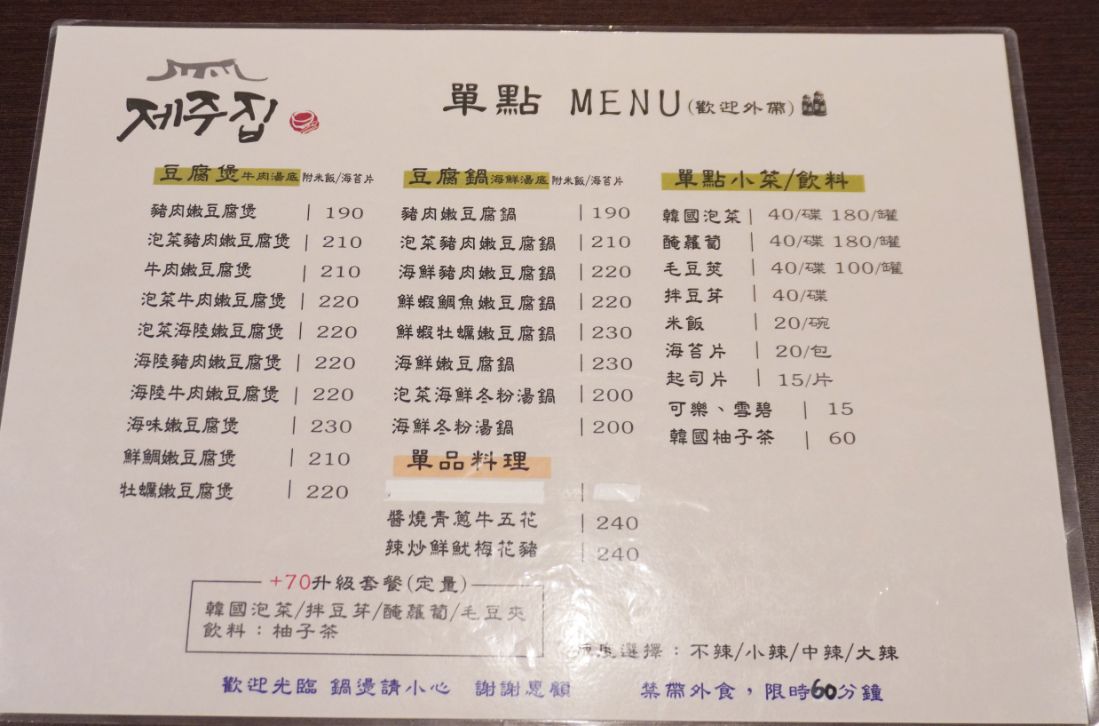 제주집
單點 MENU(歡迎外帶)
豆腐煲牛肉湯底 附米飯/海苔片
豬肉嫩豆腐煲 | 190
泡菜豬肉嫩豆腐煲 | 210
牛肉嫩豆腐煲 | 210
泡菜牛肉嫩豆腐煲 | 220
泡菜海陸嫩豆腐煲 | 220
海陸豬肉嫩豆腐煲 | 220
海陸牛肉嫩豆腐煲 | 220
海味嫩豆腐煲 | 230
鮮鯛嫩豆腐煲 | 210
牡蠣嫩豆腐煲 | 220
豆腐鍋海鮮湯底 附米飯/海苔片
豬肉嫩豆腐鍋 | 190
泡菜豬肉嫩豆腐鍋 | 210
海鮮豬肉嫩豆腐鍋 | 220
鮮蝦鯛魚嫩豆腐鍋 | 220
鮮蝦牡蠣嫩豆腐鍋 | 230
海鮮嫩豆腐鍋 | 230
泡菜海鮮冬粉湯鍋 | 200
海鮮冬粉湯鍋 | 200
單品料理
醬燒青蔥牛五花 | 240
辣炒鮮魷梅花豬 | 240
單點小菜/飲料
韓國泡菜 | 40/碟 180/罐
醃蘿蔔 | 40/碟 180/罐
毛豆莢 | 40/碟 100/罐
拌豆芽 | 40/碟
米飯 | 20/碗
海苔片 | 20/包
起司片 | 15/片
可樂、雪碧 | 15
韓國柚子茶 | 60
+70升級套餐(定量)
韓國泡菜/拌豆芽/醃蘿蔔/毛豆夾
飲料：柚子茶
選擇：不辣/小辣/中辣/大辣
歡迎光臨 鍋燙請小心 謝謝惠顧
禁帶外食，限時60分鐘